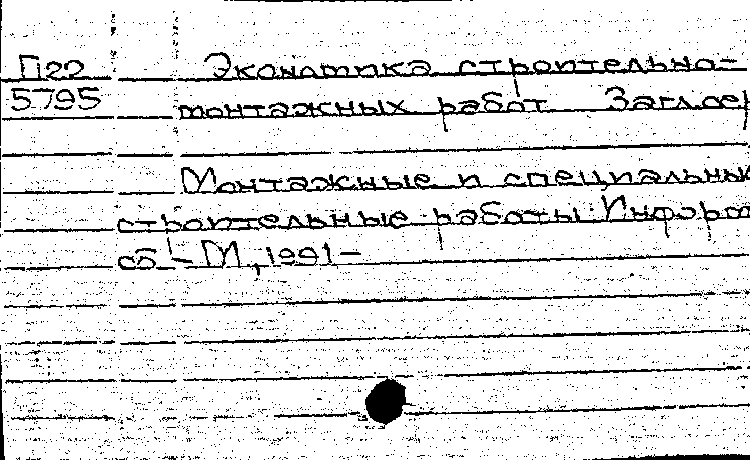 П22 Экономика строительно-
5795 монтажных работ Загл.сер
Монтажные и специальны
строительные работы: Информ
сб - М, 1991 -